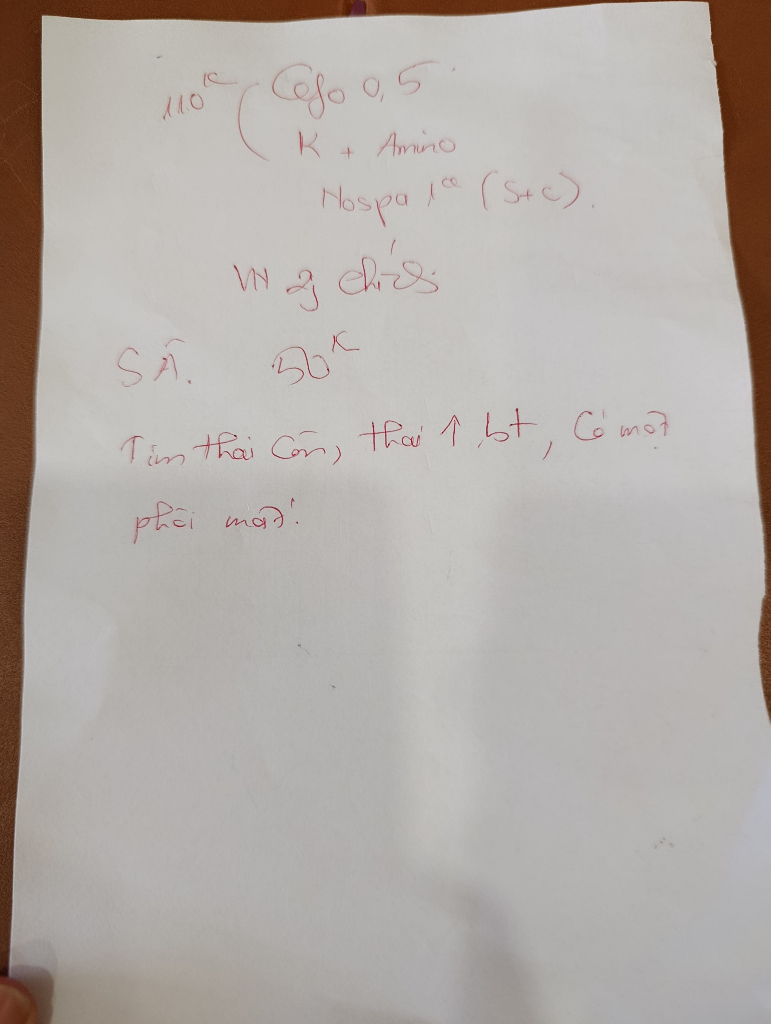 110K ( Cefo 0,5
K + Amino
Nospa 1cc (S+C).
VN
SÂ. 50K
Tim thai còn, thai ↑ bt, Có một
phôi mất.